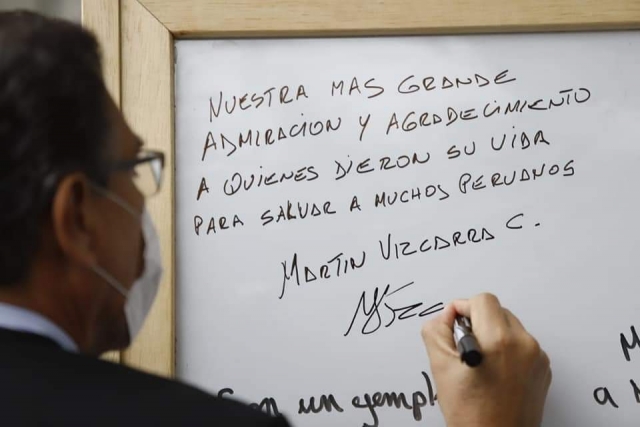 NUESTRA MAS GRANDE
ADMIRACION Y AGRADECIMIENTO
A QUIENES DIERON SU VIDA
PARA SALVAR A MUCHOS PERUANOS
MARTIN VIZCARRA C.
Son un ejempl
a